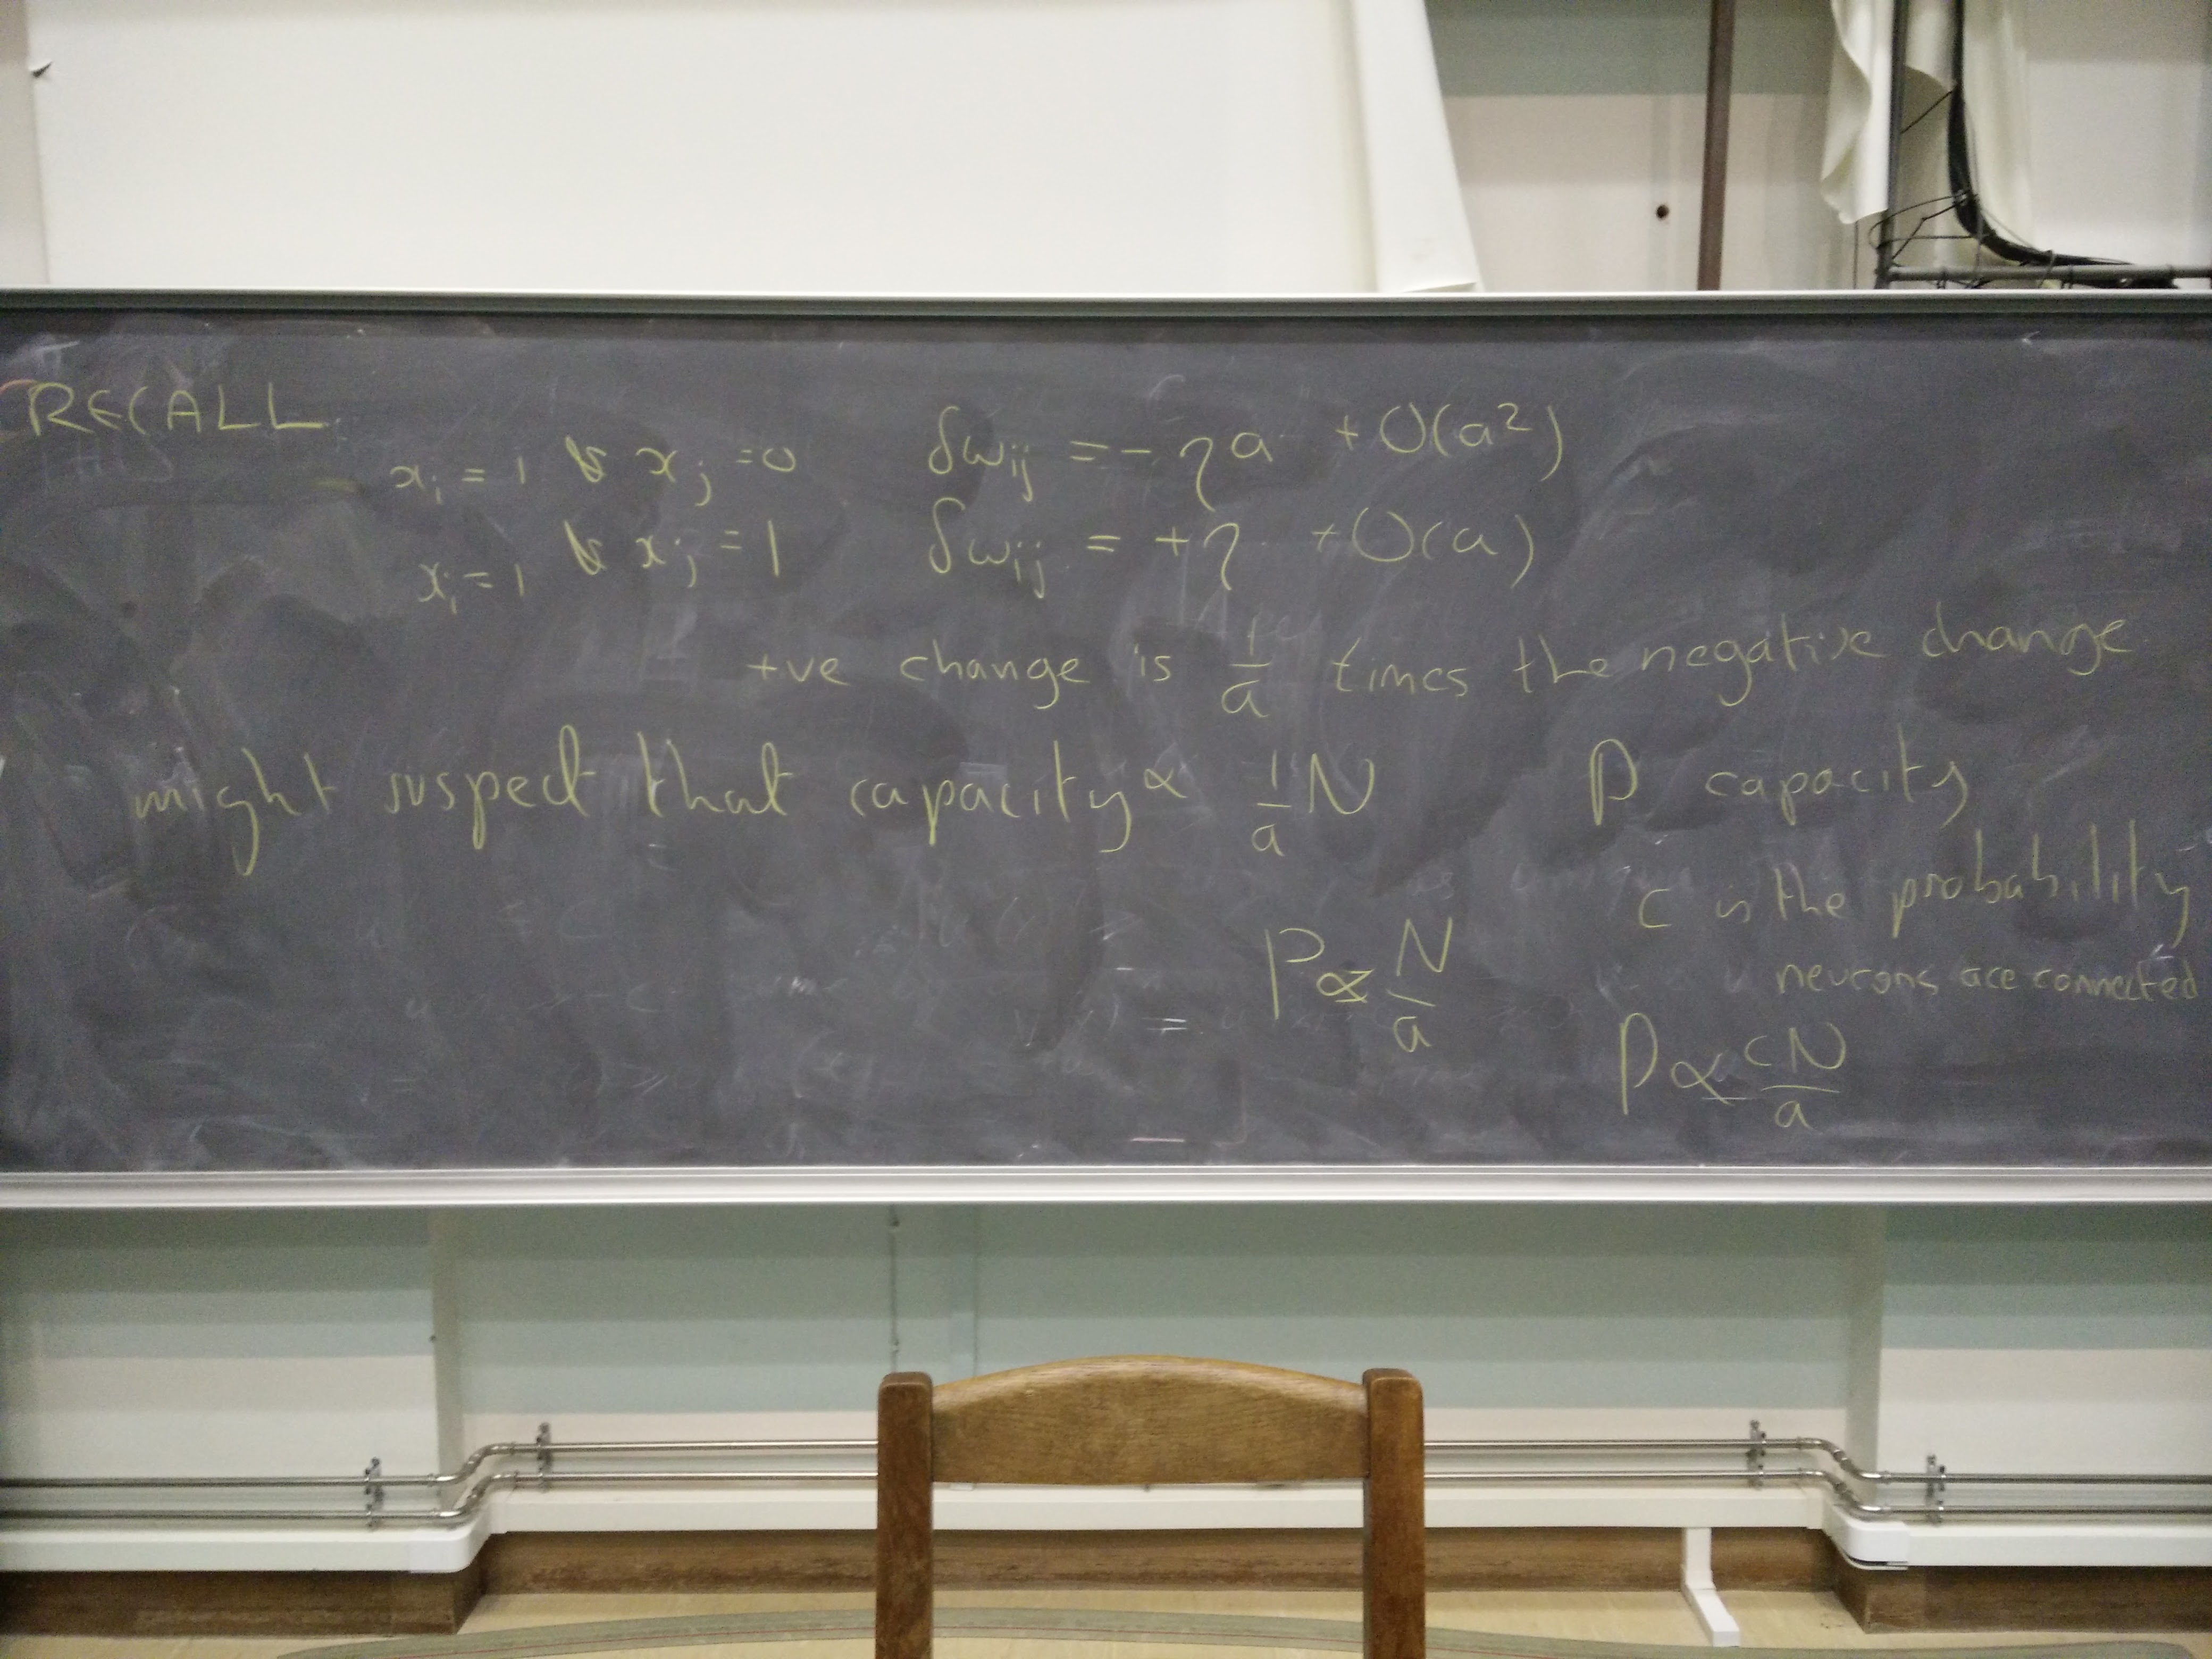 RECALL
xᵢ = 1 & xⱼ = 0 δwᵢⱼ = - ηa + O(a²)
xᵢ = 1 & xⱼ = 1 δwᵢⱼ = + η + O(a)
+ve change is 1/a times the negative change
might suspect that capacity ∝ 1/a N
P capacity
C is the probability
neurons are connected
P ∝ N/a
P ∝ cN/a